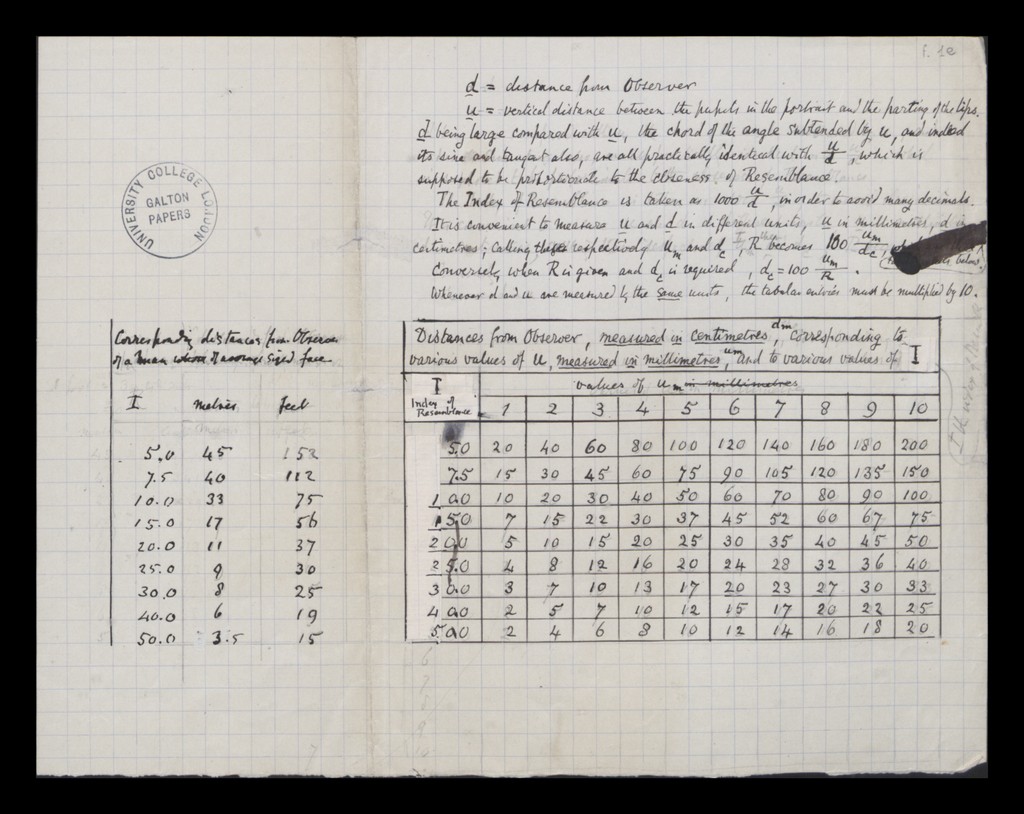 f. 1e
d = distance from Observer
u = vertical distance between the pupils in the portrait and the parting of the lips.
d being large compared with u, the chord of the angle subtended by u, and indeed
its sine and tangent also, are all practically identical with u/d, which is
supposed to be proportionate to the closeness of Resemblance.
The Index of Resemblance is taken as 1000 u/d, in order to avoid many decimals.
It is convenient to measure u and d in different units, u in millimetres, d in
centimetres; calling these respectively um and dc, R then becomes 100 um/dc,
Conversely when R is given and dc is required, dc = 100 um/R. below
Whenever d and u are measured by the same units, the tabular entries must be multiplied by 10.
UNIVERSITY COLLEGE LONDON
GALTON
PAPERS
Corresponding distances from Observer
of a man whose of average sized face
I metres feet
5.0 45 152
7.5 40 112
10.0 33 75
15.0 17 56
20.0 11 37
25.0 9 30
30.0 8 25
40.0 6 19
50.0 3.5 15
Distances from Observer, measured in centimetres dm, corresponding to
various values of u, measured in millimetres um, and to various values of I
I values of um in millimetres
Index of
Resemblance 1 2 3 4 5 6 7 8 9 10
5.0 20 40 60 80 100 120 140 160 180 200
7.5 15 30 45 60 75 90 105 120 135 150
10.0 10 20 30 40 50 60 70 80 90 100
15.0 7 15 22 30 37 45 52 60 67 75
20.0 5 10 15 20 25 30 35 40 45 50
25.0 4 8 12 16 20 24 28 32 36 40
30.0 3 7 10 13 17 20 23 27 30 33
40.0 2 5 7 10 12 15 17 20 22 25
50.0 2 4 6 8 10 12 14 16 18 20